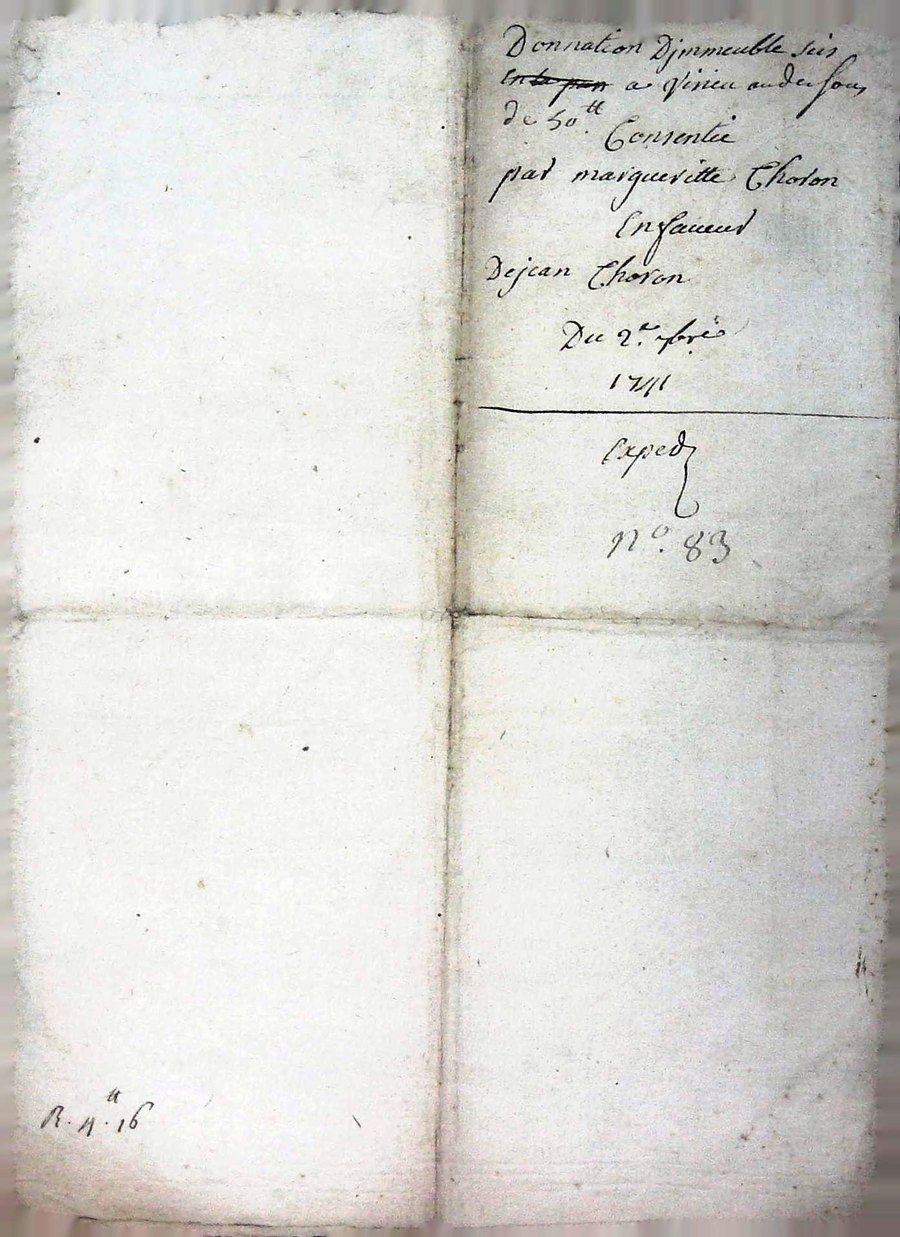 Donnation Djmmeuble sis
a Virieu audessous
de 50.tt
Consentie
par margueritte Choron
En faueur
De jean Choron
Du 2.e 7bre
1741
Exped
N.o 83
R. 4.tt 16